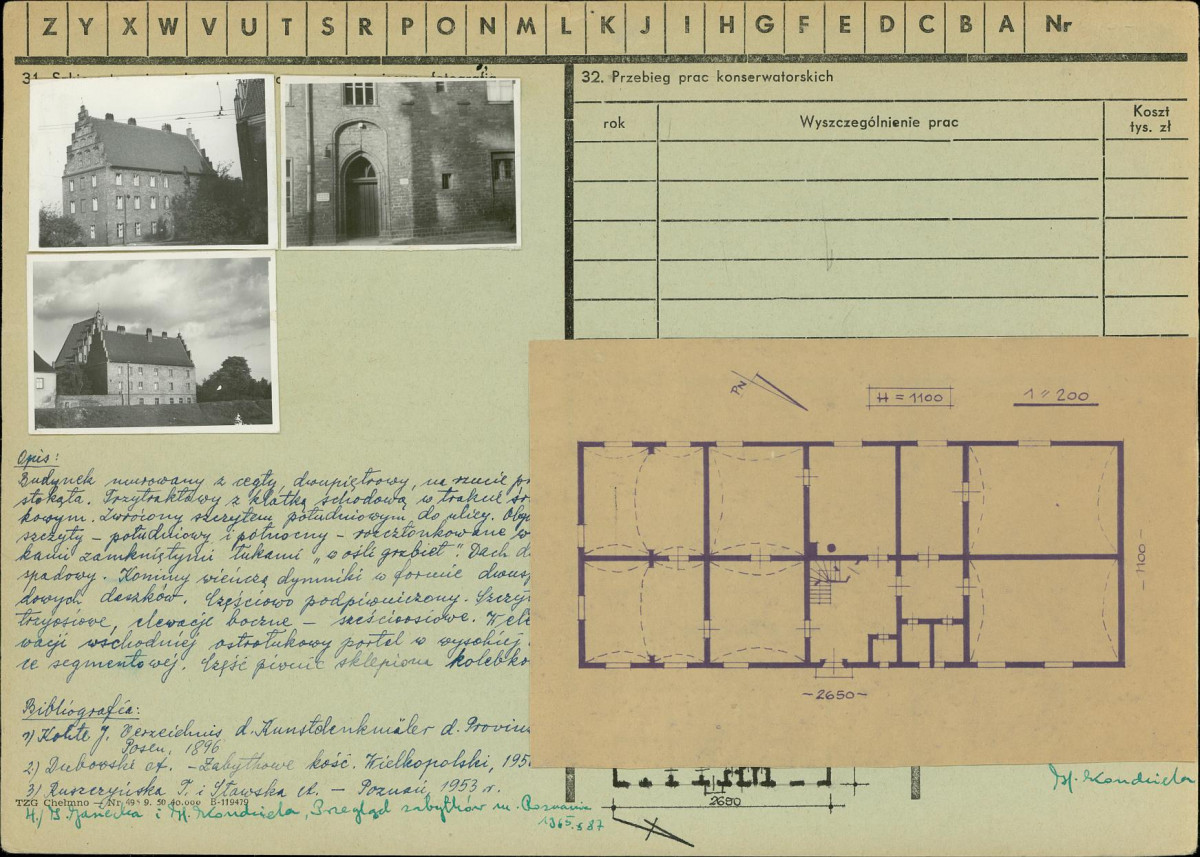 Z Y X W V U T S R P O N M L K J I H G F E D C B A Nr
31.
fotografia
32. Przebieg prac konserwatorskich
rok
Wyszczególnienie prac
Koszt
tys. zł
PN
H = 1100
1 : 200
-1100-
-2650-
Opis:
Budynek murowany z cegły, dwupiętrowy, na rzucie pr
stokąta. Trzytraktowy z klatką schodową w trakcie śr
kowym. Zwrócony szczytem południowym do ulicy. Oby
szczyty - południowy i północny - rozczłonkowane w
kami zamkniętymi łukami "w ośli grzbiet". Dach d
spadowy. Kominy wieńczą dymniki w formie dwusp
dowych daszków. Częściowo podpiwniczony. Szczyt
trzyosiowe, elewacje boczne - sześcioosiowe. W ele
wacji wschodniej ostrołukowy portal w wysokiej
ce segmentowej. Część piwnic sklepiona kolebko
Bibliografia:
1) Kohte J. Verzeichnis d. Kunstdenkmäler d. Provinz
Posen, 1896
2) Dubowski A. - Zabytkowe kość. Wielkopolski, 195
3) Ruszczyńska T. i Sławska A. - Poznań, 1953 r.
TZG Chełmno - Nr 49 9. 50 40.000 B-119479
4.) i H. Kondziela, Przegląd zabytków m. Poznania
1965 s 87
2650
H. Kondziela